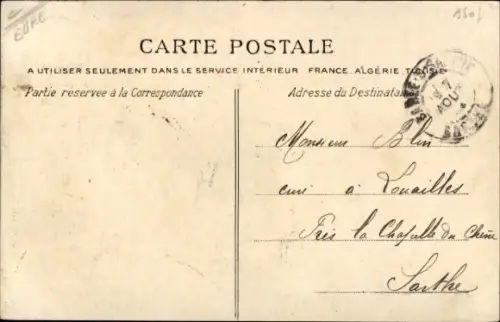 EURE
150f
CARTE POSTALE
A UTILISER SEULEMENT DANS LE SERVICE INTÉRIEUR FRANCE, ALGÉRIE, TUNISIE
Partie réservée à la Correspondance
Adresse du Destinataire
7
AOUT
SARTHE
Monsieur Blin
à Louailles
Près la Chapelle du Chêne
Sarthe